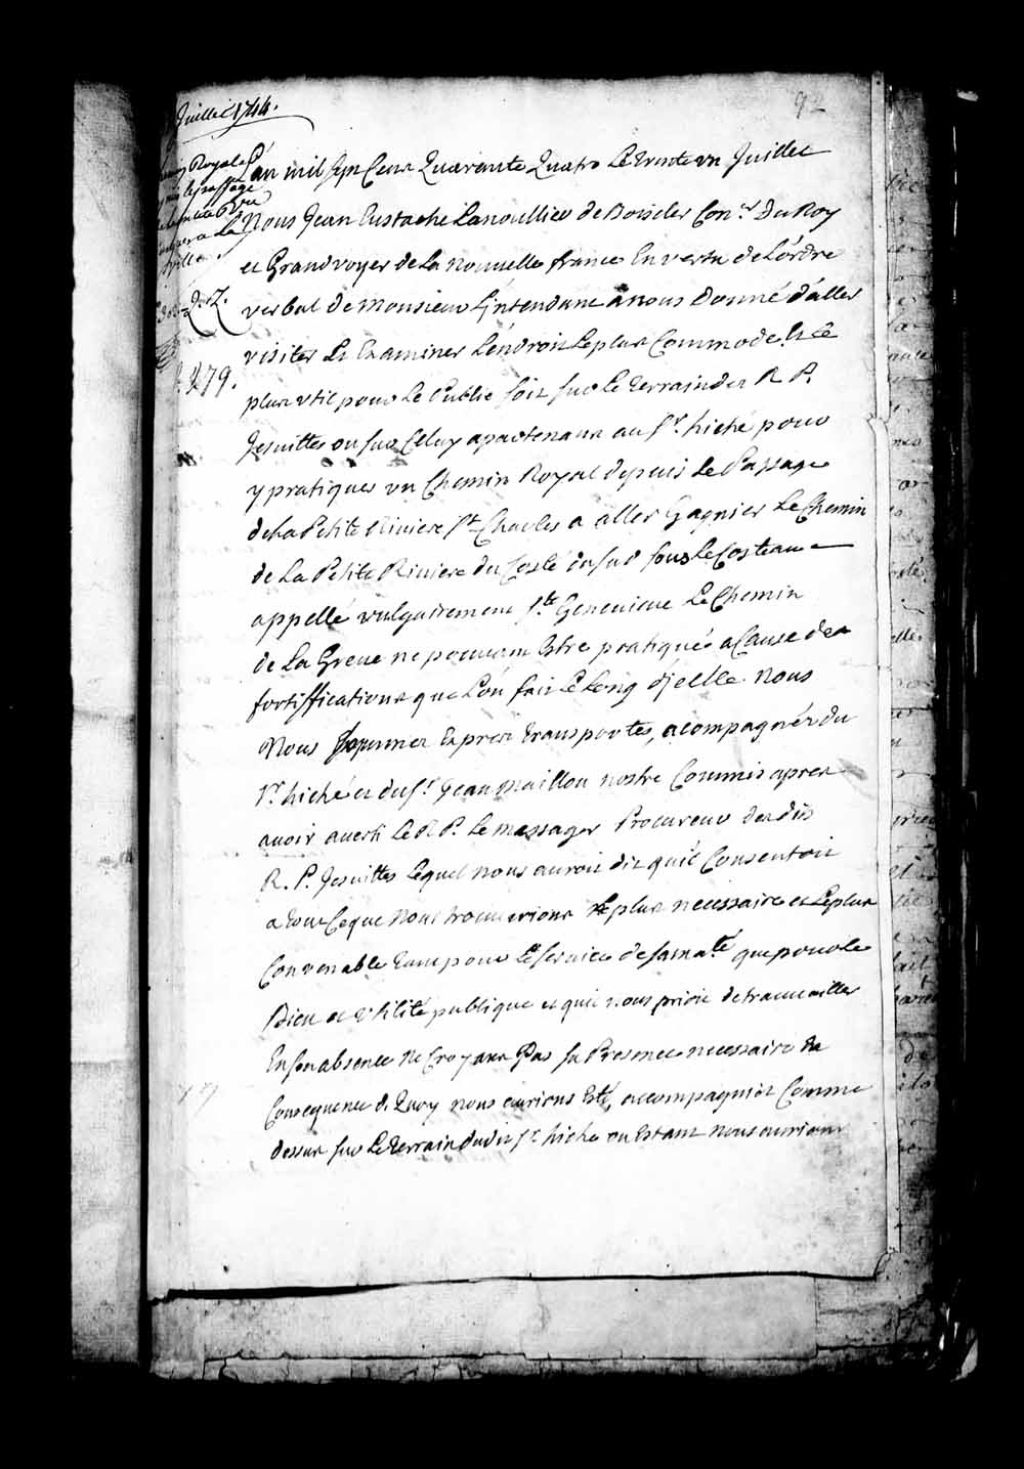 Juillet 1744.
92
L'an mil sept Cent Quarante Quatre Le trente un Juillet
Nous Jean Eustache Lanoullier de Boiscler Con.er Du Roy
et Grand voyer de La nouvelle france En vertu de L'ordre
verbal de monsieur L'intendant a nous Donné d'aller
visiter Et Examiner L'endroit Le plus Commode Et Le
plus util pour Le Public soit sur Le terrain des R. P.
Jesuittes ou sur Celuy apartenant au Sr. hiché pour
y pratiquer un Chemin Royal depuis Le Passage
de La Petite Riviere St. Charles a aller Gagnier Le Chemin
de La Petite Riviere du Costé du sud sous Le Costeau
appellé vulgairement Ste. Genevieve Le Chemin
de La Greve ne pouvant Estre pratiqué a Cause des
fortiffications que L'on fait Le Long d'jcelle. Nous
Nous sommes Expres transportés, acompagnés du
Sr. hiché et du Sr. Jean Maillou nostre Commis apres
avoir averti Le R. P. Le messager Procureur des dits
R. P. Jesuittes Lequel nous auroit dit qu'il Consentoit
a tout Ce que Nous trouverions Le plus necessaire et Le plus
Convenable tant pour Le service de sa ma.té que pour le
Bien et Utilité publique et qu'il nous prioit de travailler
En son absence ne Croyant Pas sa Presence necessaire En
Consequence de Quoy nous aurions Esté, accompagniés Comme
dessus sur Le terrain dudit Sr. hiché ou Estant nous aurions
No. 79.